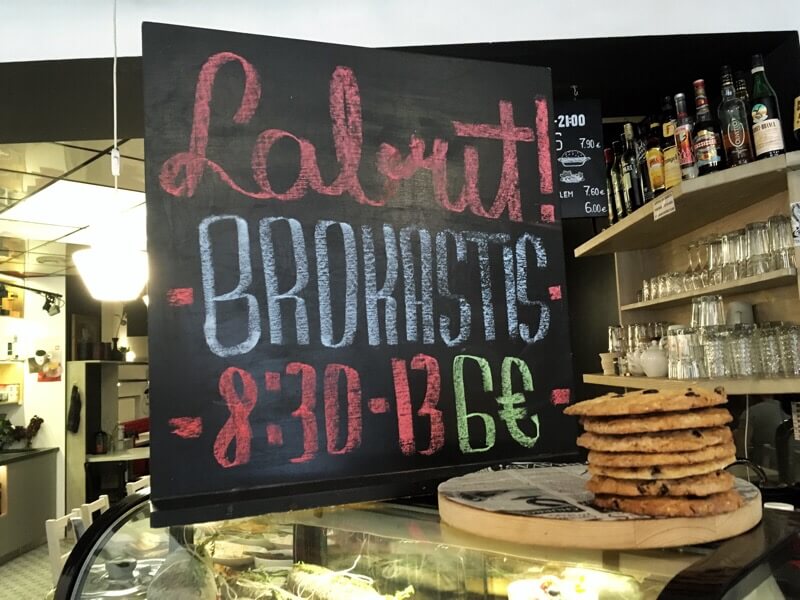 Labrīt!
BROKASTIS
- 8:30-13 6€
-21:00
7.90€
LEM 7.60€
6.00€